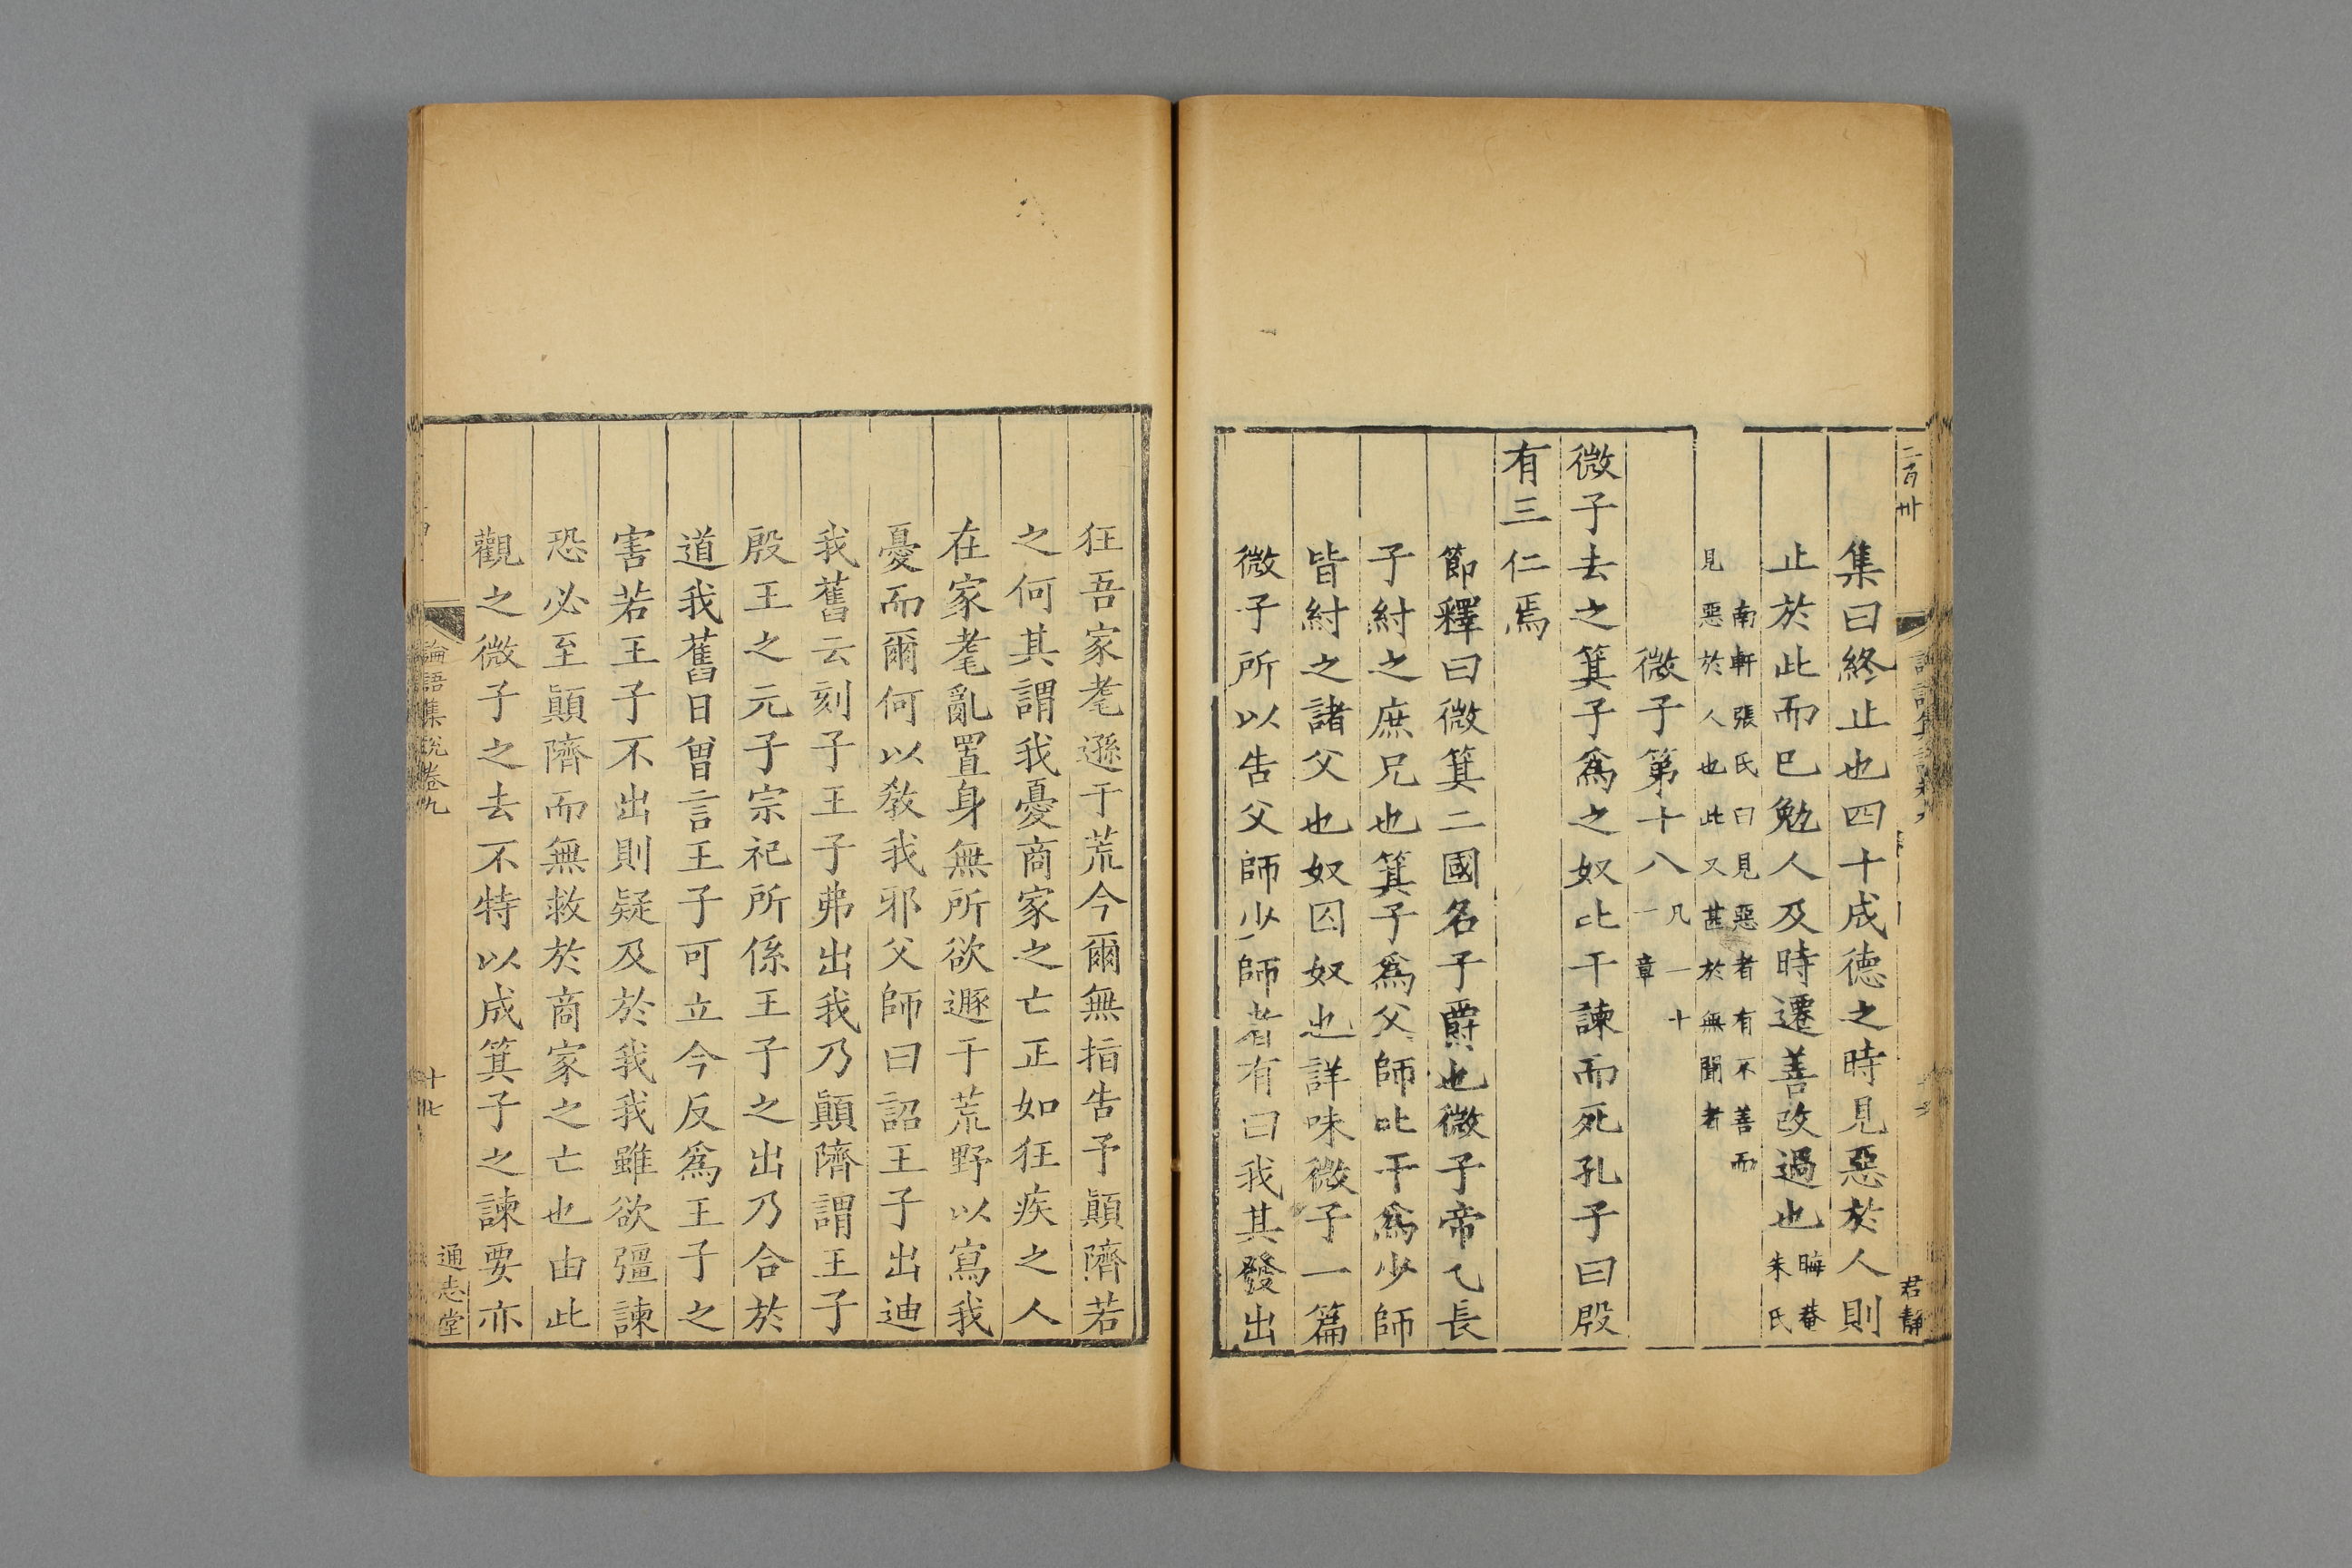 二百卅
君靜
集曰終止也四十成德之時見惡於人則
止於此而已勉人及時遷善改過也晦菴朱氏
南軒張氏曰見惡者有不善而
見惡於人也此又甚於無聞者
微子第十八凡一十一章
微子去之箕子爲之奴比干諫而死孔子曰殷
有三仁焉
節釋曰微箕二國名子爵也微子帝乙長
子紂之庶兄也箕子爲父師比干爲少師
皆紂之諸父也奴囚奴也詳味微子一篇
微子所以告父師少師者有曰我其發出
狂吾家耄遜于荒今爾無指告予顚隮若
之何其謂我憂商家之亡正如狂疾之人
在家耄亂置身無所欲遯于荒野以寫我
憂而爾何以敎我邪父師曰詔王子出迪
我舊云刻子王子弗出我乃顚隮謂王子
殷王之元子宗祀所係王子之出乃合於
道我舊日曾言王子可立今反爲王子之
害若王子不出則疑及於我我雖欲彊諫
恐必至顚隮而無救於商家之亡也由此
觀之微子之去不特以成箕子之諫要亦
論語集說卷九
十七
通志堂